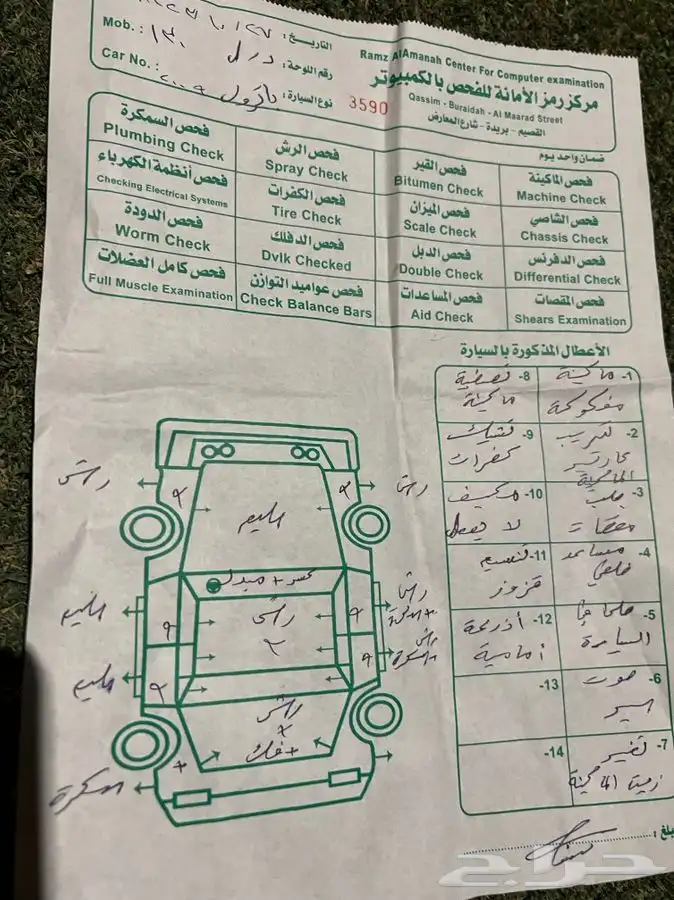 Ramz AlAmanah Center For Computer examination
مركز رمز الأمانة للفحص بالكمبيوتر
Qassim - Buraidah - Al Maarad Street
القصيم - بريدة - شارع المعارض
3590
التاريخ :
رقم اللوحة :
نوع السيارة : باترول ٢٠٠٩
Mob. :
Car No. :
ضمان واحد يوم
فحص الماكينة
Machine Check
فحص القير
Bitumen Check
فحص الرش
Spray Check
فحص السمكرة
Plumbing Check
فحص الشاصي
Chassis Check
فحص الميزان
Scale Check
فحص الكفرات
Tire Check
فحص أنظمة الكهرباء
Checking Electrical Systems
فحص الدفرنس
Differential Check
فحص الدبل
Double Check
فحص الدفلك
Dvlk Checked
فحص الدودة
Worm Check
فحص المقصات
Shears Examination
فحص المساعدات
Aid Check
فحص عواميد التوازن
Check Balance Bars
فحص كامل العضلات
Full Muscle Examination
الأعطال المذكورة بالسيارة
1- ماكينة
مفكوكة
8- تصفية
ماكينة
2- تهريب
9- تشيك
كفرات
3- جلب
مقصات
10- مكيف
لا يعمل
4- مساعد
خلفي
11- تنسيم
قزوز
5-
السيارة
12- أذرعة
أمامية
6- صوت
سير
13-
7- تغيير
زيت الماكينة
14-
رش
رش
سليم
سليم
رش
سليم
رش
رش
+ فك
سمكرة
حراج